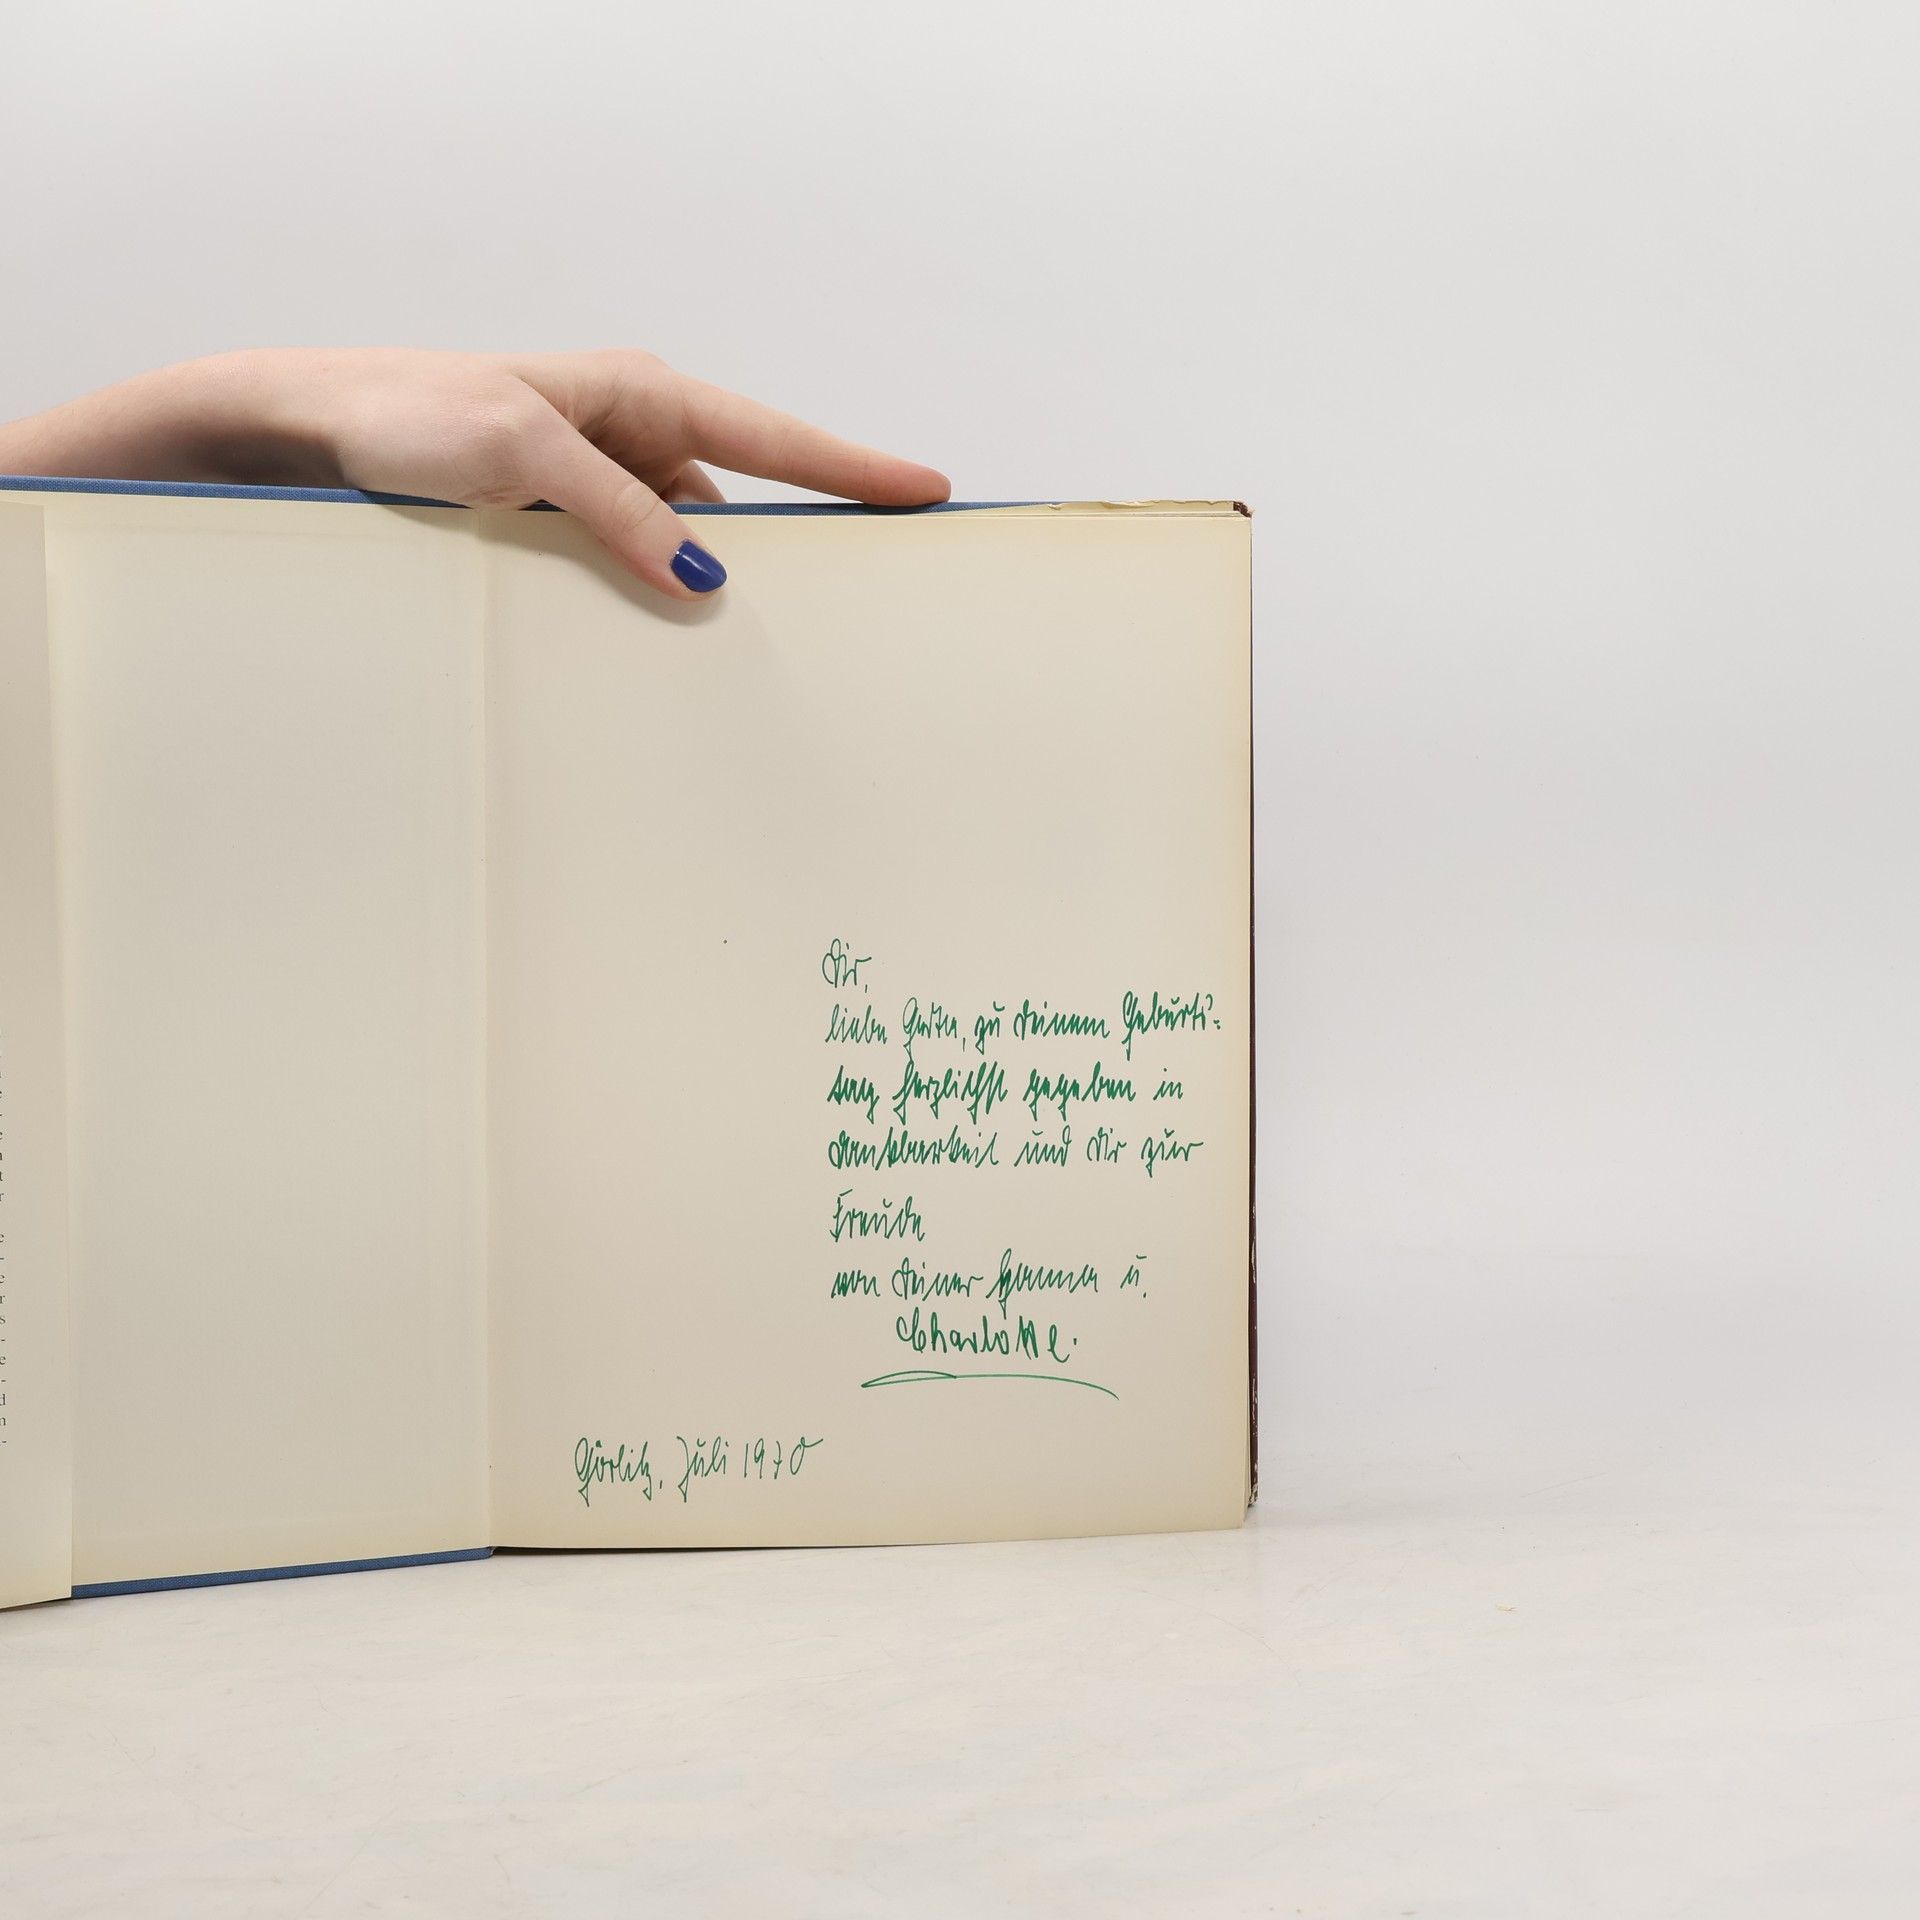 Dir,
liebe Grete, zu Deinem Geburts=
tag herzlichst gegeben in
Dankbarkeit und Dir zur
Freude
von Deiner Hanna u.
Charlotte.
Görlitz, Juli 1970